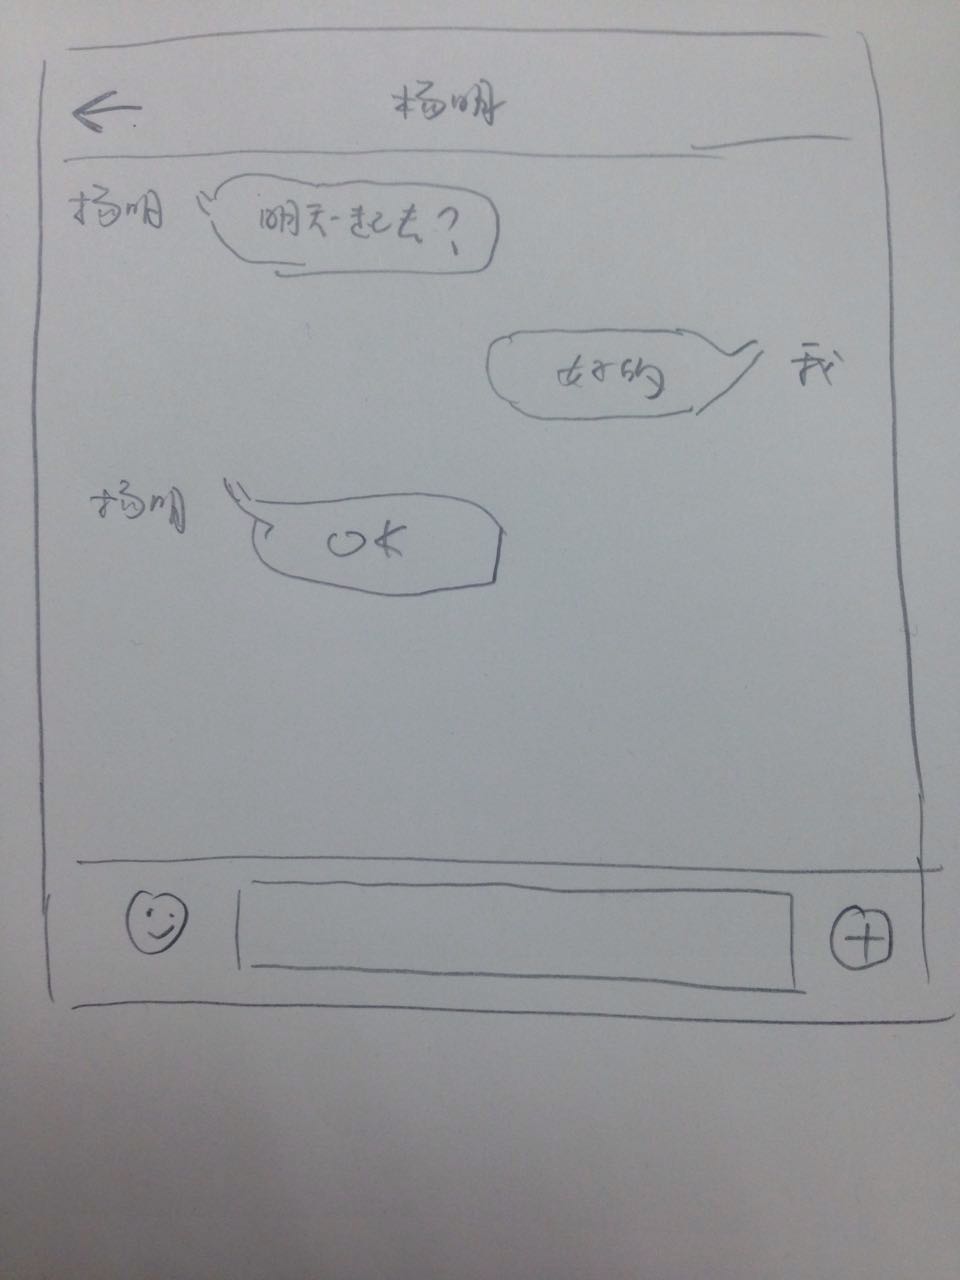 杨明
杨明 明天一起去?
好的 我
杨明 OK